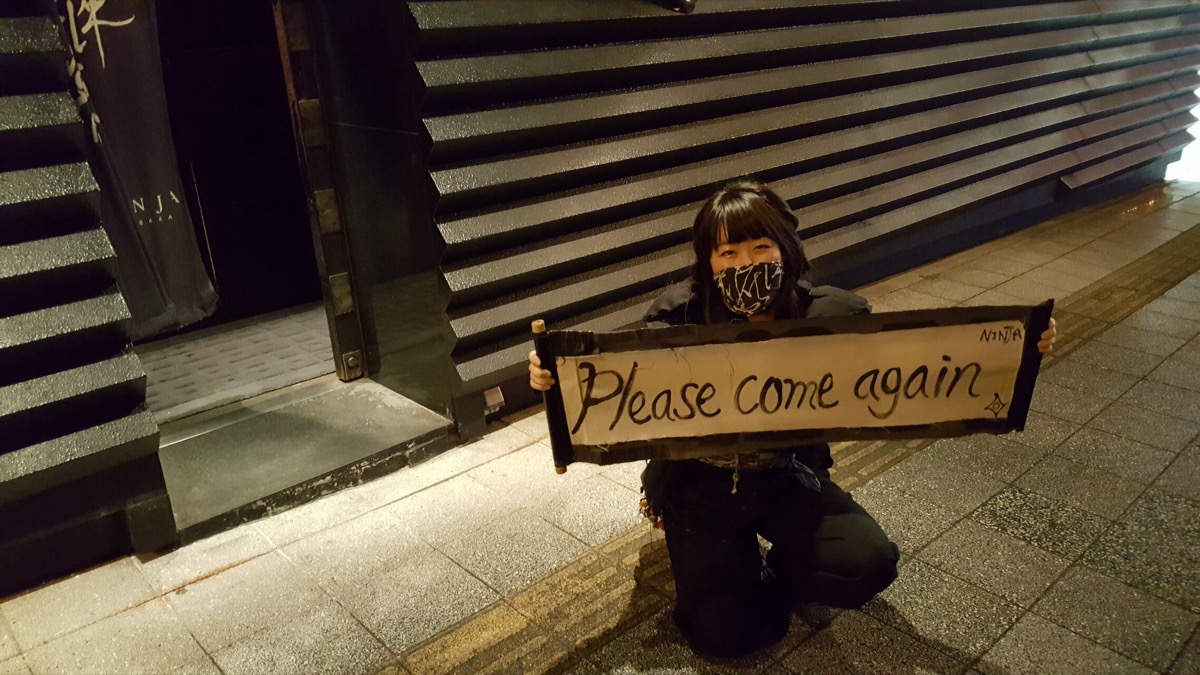 NJA
NINJA
Please come again